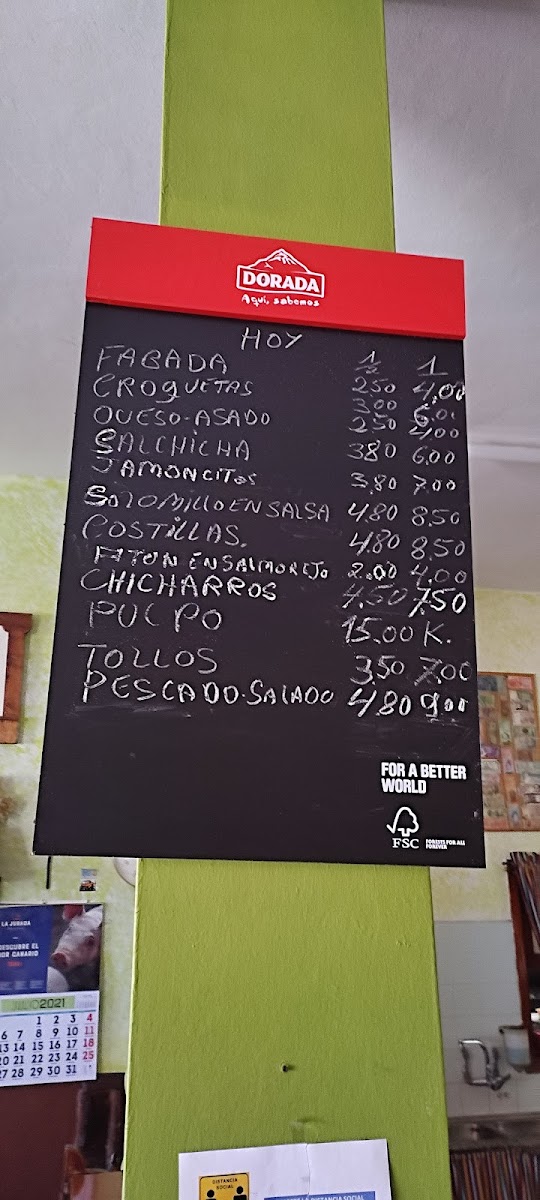 DORADA
Aquí, sabemos
HOY
FABADA 1/2 1
CROQUETAS 2.50 4,00
QUESO-ASADO 3.00 6.00
SALCHICHA 2.50 4.00
JAMONCITOS 3.80 6.00
SOLOMILLO EN SALSA 3.80 7.00
COSTILLAS. 4.80 8.50
ATUN EN SALMOREJO 4.80 8.50
CHICHARROS 2.00 4.00
PULPO 4.50 7.50
15.00 K.
TOLLOS 3.50 7.00
PESCADO-SALADO 4.80 9.00
FOR A BETTER
WORLD
FSC
FORESTS FOR ALL
FOREVER
LA JURADA
DESCUBRE EL
JULIO 2021
1 2 3 4
6 7 8 9 10 11
13 14 15 16 17 18
20 21 22 23 24 25
27 28 29 30 31
DISTANCIA
SOCIAL
LA DISTANCIA SOCIAL